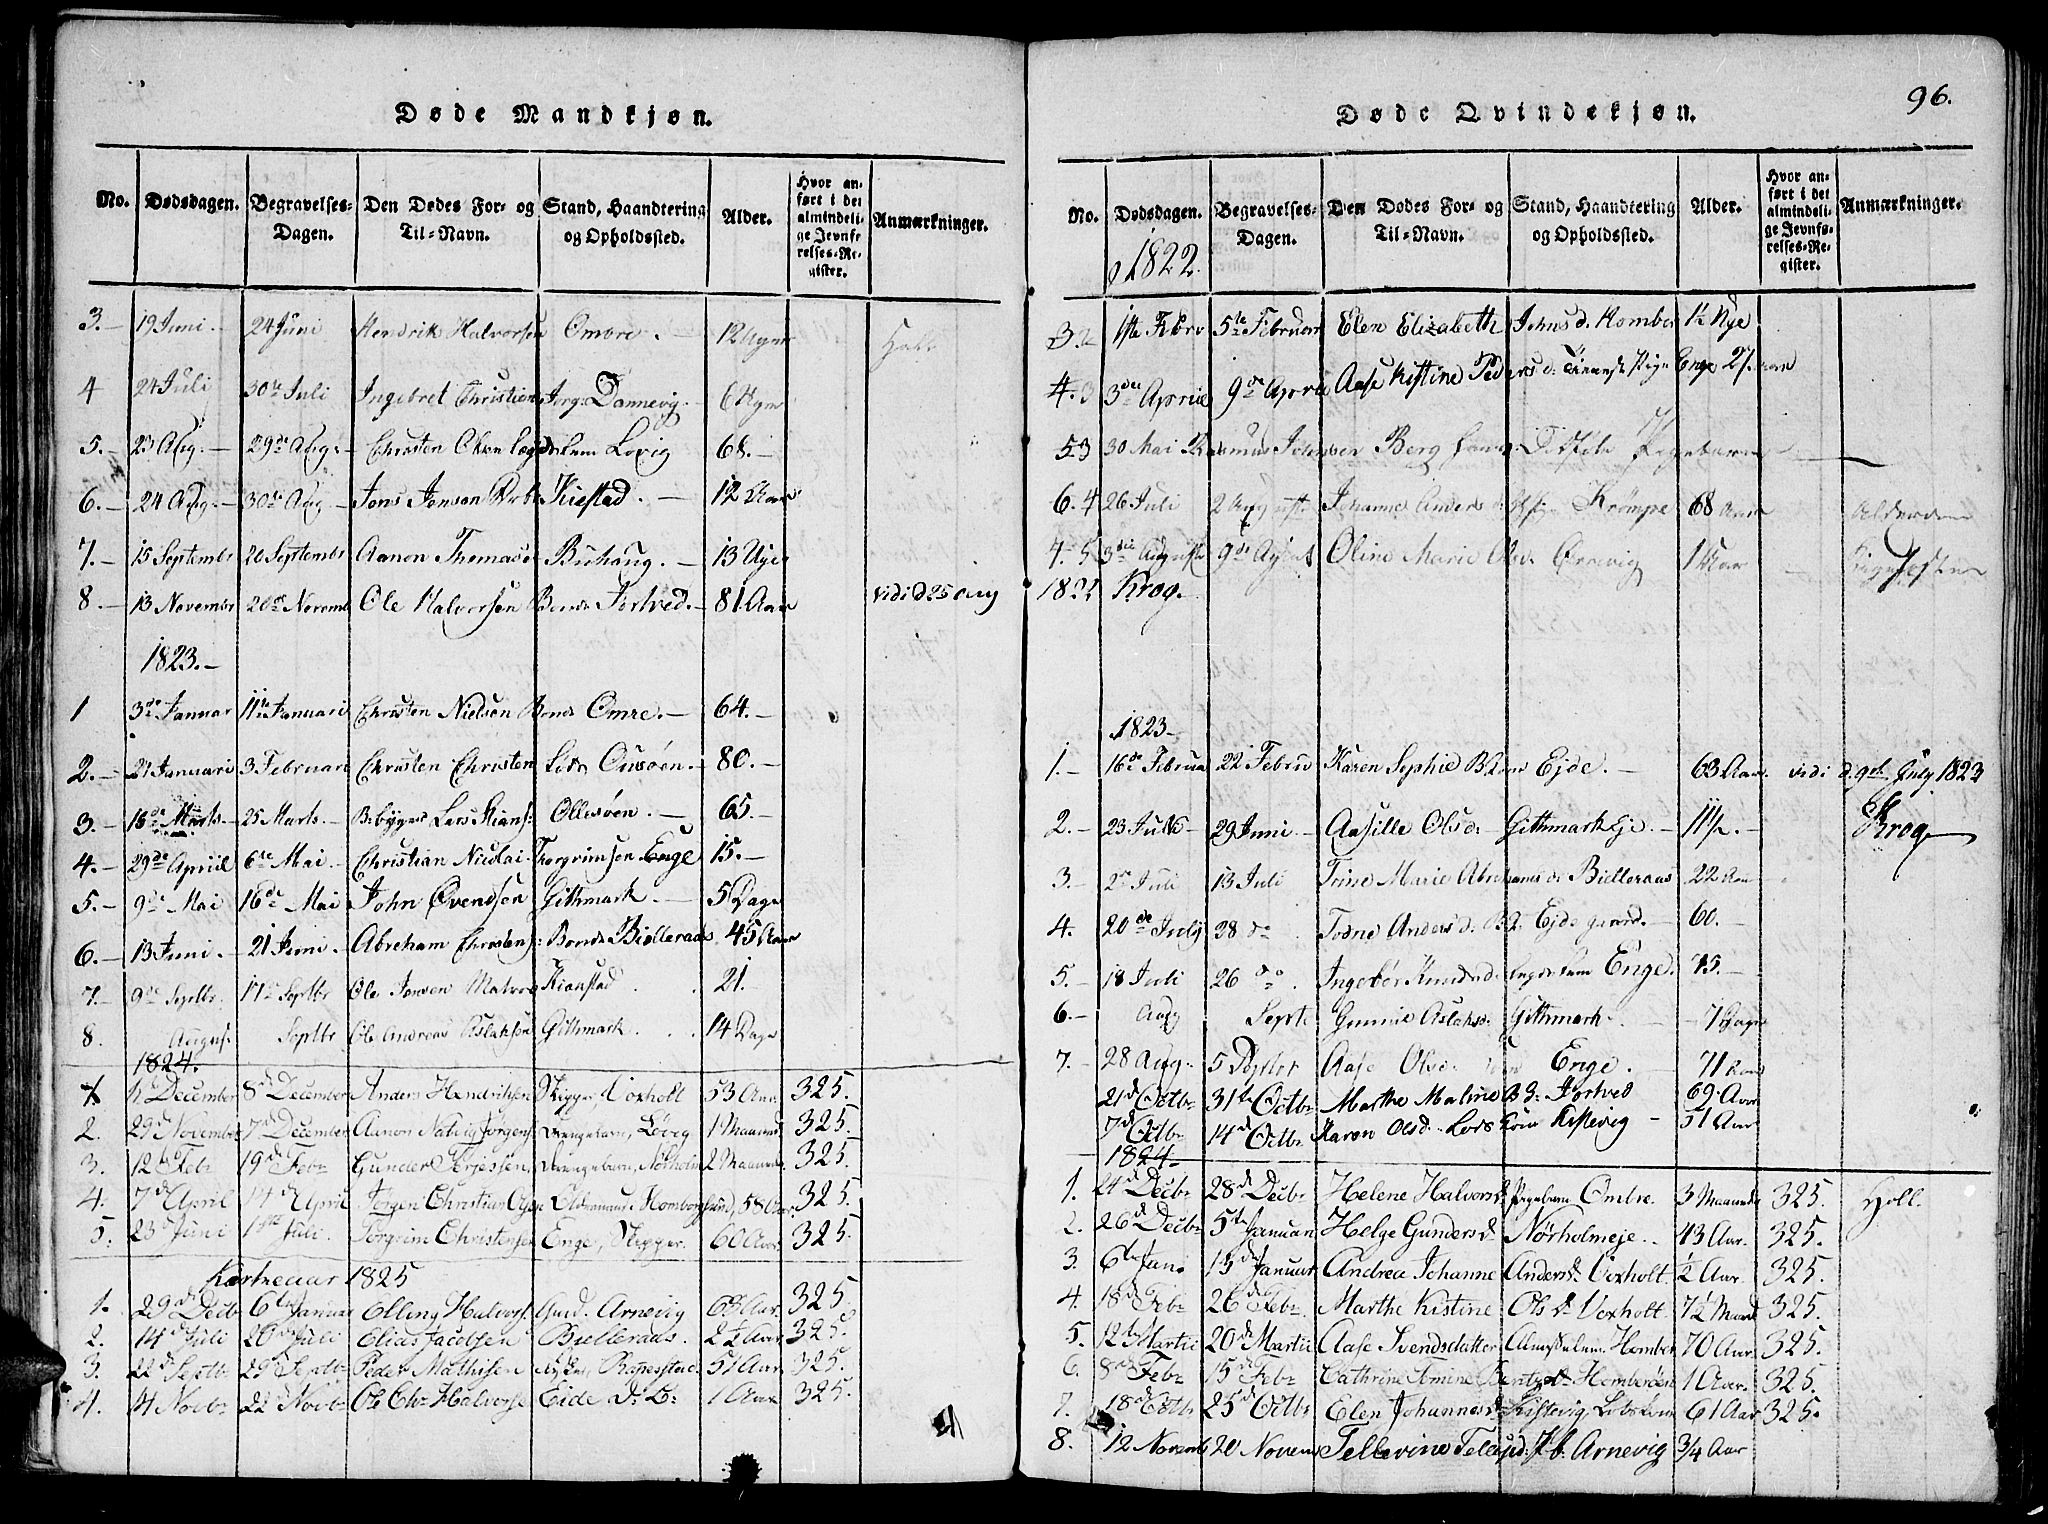 Døde Mandkjøn.
No. Dødsdagen. Begravelses-Dagen. Den Dødes For- og Til-Navn. Stand, Haandtering og Opholdssted. Alder. Hvor anført i det almindelige Jevnførelses-Register. Anmærkninger.
3.- 19 Juni.- 24 Juni Hendrik Halvorsen Ombre.- 12 Uger
4 24 Juli 30te Juli Ingebret Christian Jørg: Dannevig.- 6 Ugr
5.- 23 Aug.- 29de Aug.- Christen Olsen Lovig 68.-
6.- 24 Aug.- 30te Aug- Jens Jensen Kiestad.- 12 Aar
7.- 15 Septembr 20 Septembr Aanon Thomasø Buhaug.- 13 Uge
8.- 13 Novembr 20de Novemb Ole Halvorsen Bonde Tortved.- 81 Aar vidi d 25 Aug
1823.-
1 3de Januar 11te Januari Christen Nielsen Bonde Omre.- 64.-
2.- 21 Januari 3 Februari Christen Christen Lods 80.-
3.- 16de Marts- 25 Marts.- Lars Ollesøen.- 65.-
4.- 29de Apriil 6te Mai.- Christian Nicolai Thorgrimsen Enge 15.-
5.- 9de Mai 16de Mai John Øvendsen Githmark.- 5 Dage
6.- 13 Juni.- 21 Juni.- Abreham Christens: Bonde Bielleraas 45 Aar
7.- 9de Septbr. 17de Septbr Ole Jensen 21.-
8. August Septbr Ole Andreas Aslaksen Githmark. 14 Dage
1824.
1. December 8d December Anders Hendriksen Skipper, Voxholt 53 Aar. 325.
2. 29d November 7d December Aanon Natvig Jørgens Drengebarn, Løveg 1 Maaned 325.
3. 12te Febr 19d Febr Gunder Terjessen, Drengebarn, Nørholm 2 Maaneder 325.
4. 7d April 14d April Jørgen Christian Homborgsund, 58 Aar. 325.
5. 23d Juni 1ste Juli. Torgrim Christensen Enge, Skipper. 60 Aar. 325.
Kirkeaar 1825
1. 29d Decbr 6te Januar Olling Halvors. Arnevig 68 Aar. 325.
2. 14d Juli 20d Juli Elias Jacobsen Bielleraas. 2½ Aar. 325.
3. 22d Septbr 29 Septbr Peder Mathisen 57 Aar. 325.
4. 4 Novbr 22 Novbr Ole Chr. Halvorse Eide 1 Aar 325.
96.
Døde Qvindekjøn.
No. Dødsdagen. Begravelses-Dagen. Den Dødes For- og Til-Navn. Stand, Haandtering og Opholdssted. Alder. Hvor anført i det almindelige Jevnførelses-Register. Anmærkninger.
1822.
3. 1ste Febr 5te Februar Elen Elizabeth Johnsd. Homber 1½
4. 3 3die April 9de April Aase Kistine Peders d: Enge 27 Aar
5 3 30 Mai Rasmus Berg
6. 4 26 Juli 2 August Johanne Anders Krømpe 68 Aar
5 3die August 9de Oline Marie Olsd. Ørnevig 1 Aar
1822 Krog.
1823
1.- 16de Februar 22 Februa Karen Sophie Ejde.- 63 Aar vidi d. 9d July 1823
2.- 23 29 Juni- Aasille Olsd: Githmark Eje- 11½.- Krog
3.- 2de Juli 13 Juli Trine Marie Abrehams d: Bielleraas 22 Aar
4. 20de July 28 do Todne Anders d. Ejde 60.-
5.- 18 Juli 26 do Ingebor Knudsd. Enge. 75.-
6.- Aug Septe Gunnie Aslaksd. Githmark. 7 Dage
7.- 28 Aug. 5 Aase Olsd. Enge. 71 Aar
21d Octbr 31te Octbr Marthe Maline Tortved 69. Aar
7d Octbr 14d Octbr Karen Olsd. Lods kone Kistevig- 51 Aar
1824.
1. 24d Decbr 28d Decbr Helene Halvorsd. Pigebarn Ombre. 3 Maaneder 325. Holl.
2. 26d Decbr 5te Januar Helge Gundersd. Nørholmeje. 43 Aar. 325.
3. 6te Jan: 13d Januar Andrea Johanne Andersd. Voxholt. ½ Aar. 325.
4. 18d Febr 26d Febr Marthe Kistine Ols d. Voxholt. 7½ Maaned 325.
5. 12te Martii 20d Martii Aase Svendsdatter Homber 70 Aar. 325.
6. 8d Febr 15d Febr Cathrine Homborøen 1 Aar. 325.
7. 18d Octbr 25d Octbr Elen Johannesd. Kistevig 61 Aar 325.
8. 12 Novemb 20 Novem Tellevine P. b. Arnevig 3/4 Aar